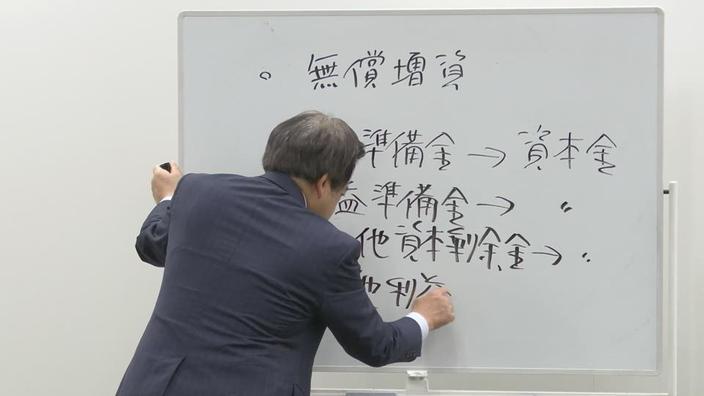 。無償増資
準備金→資本金
益準備金→〃
他資本剰余金→〃
他利